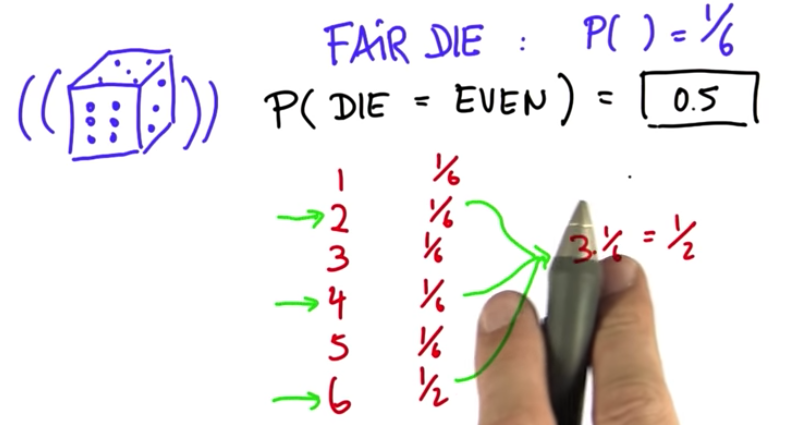 FAIR DIE : P( ) = 1/6
P( DIE = EVEN ) = 0.5
1 1/6
2 1/6
3 1/6 3·1/6 = 1/2
4 1/6
5 1/6
6 1/2